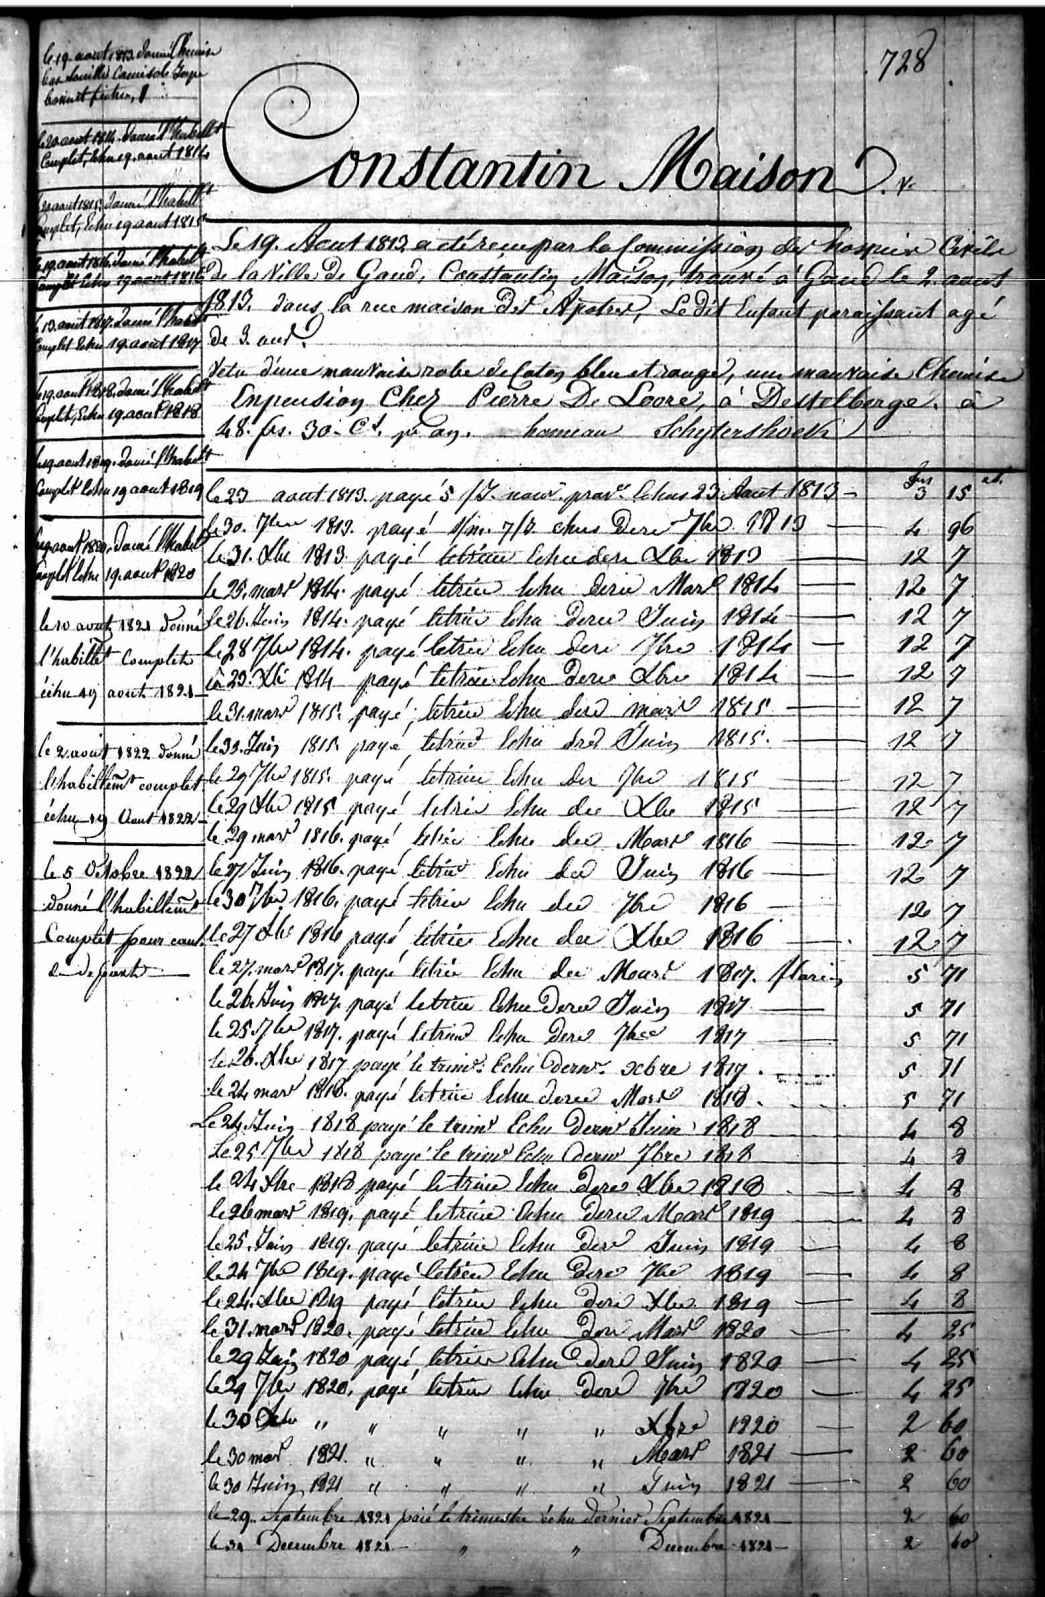 728
Constantin Maison
Le 19. Aout 1813 a été reçu par la Commission des hospices Civils
de la Ville de Gand, Constantin Maison, trouvé à Gand le 2. aout
1813. dans la rue maison des Apotres, Ledit Enfant paraissant agé
de 3. ans.
Vetu d'une mauvaise robe de Coton bleu et rouge, une mauvaise Chemise
En pension Chez Pierre De Loore, à Destelberge. à
48. frs. 30. Ct. pr. an. hameau
le 19 aout 1813 donné Chemise
bas Camisole Jupe
bonnet fichu, 1
le 20 aout 1814. donné l'habillt
Complet, Echu 19. aout 1814
aout 1815. donné l'habillt
Complet, Echu 19 aout 1815
le 19. aout 1816. donné l'habillt
Complet Echu 19 aout 1816
le 13. aout 1817. donné l'habillt
Complet Echu 19. aout 1817
le 19. aout 1818. donné l'habillt
Complet, Echu 19. aout 1818
le 19 aout 1819. donné l'habillt
Complet Echu 19 aout 1819
aout 1820. donné l'habillt
Complet Echu 19. aout 1820
le 10 aout 1821 donné
l'habillet Complet
échu 19 aout 1821
le 2 aout 1822 donné
l'habillemt complet
échu 19 Aout 1822
le 5 Octobre 1822
donné l'habillemt
Complet pour
le 23 aout 1813. payé 5 echus 23 Aout 1813 3 15
le 30. 7bre 1813. payé echus Dere 7bre 1813 4 96
le 31. Xbre 1813 payé letrim Echu dere Xbre 1813 12 7
le 25. mars 1814. payé letrim Echu dere Mars 1814 12 7
le 26. Juin 1814. payé letrim Echu Dere Juin 1814 12 7
le 28 7bre 1814. payé letrim Echu dere 7bre 1814 12 7
23. Xbr 1814 payé letrim Echu Dere Xbre 1814 12 7
le 31. mars 1815. payé letrim Echu dere mars 1815 12 7
le 30. Juin 1815 payé letrim Echu dre Juin 1815. 12 7
le 29 7bre 1815. payé letrim Echu der 7bre 1815 12 7
le 29 Xbre 1815 payé letrim Echu der Xbre 1815 12 7
le 29 mars 1816. payé letrim Echu der Mars 1816 12 7
le 27 Juin 1816. payé letrim Echu der Juin 1816 12 7
le 30 7bre 1816. payé letrim Echu der 7bre 1816 12 7
le 27 Xbre 1816 payé letrim Echu der Xbre 1816 12 7
le 27. mars 1817. payé letrim Echu der Mars 1817. florins 5 71
le 26. Juin 1817. payé letrim Echu Dere Juin 1817 5 71
le 25. 7bre 1817. payé letrim Echu dere 7bre 1817 5 71
le 26. Xbre 1817 payé le trimr. Echu dernr. xbre 1817. 5 71
le 24 mars 1818. payé letrim Echu dere Mars 1818. 5 71
Le 24. Juin 1818 payé le trimr Echu dernr Juin 1818 4 8
Le 25 7bre 1818 payé le trimr Echu dernr 7bre 1818 4 8
le 24 Xbre 1818 payé letrim Echu dere Xbre 1818 4 8
le 26 mars 1819. payé letrim Echu dere Mars 1819 4 8
le 25. Juin 1819. payé letrim Echu dere Juin 1819 4 8
le 24 7bre 1819. payé letrim Echu dere 7bre 1819 4 8
le 24. Xbre 1819 payé letrim Echu dere Xbre 1819 4 8
le 31. mars 1820. payé letrim Echu dere Mars 1820 4 25
le 29 Juin 1820 payé letrim Echu dere Juin 1820 4 25
le 29 7bre 1820. payé letrim Echu dere 7bre 1820 4 25
le 30 Xbre " " " " " Xbre 1820 2 60
le 30 mars 1821. " " " " Mars 1821 2 60
le 30 Juin 1821 " " " " Juin 1821 2 60
le 29. Septembre 1821 paié le trimestre échu dernier Septembre 1821 2 60
le 31 Decembre 1821 " " Decembre 1821 2 60